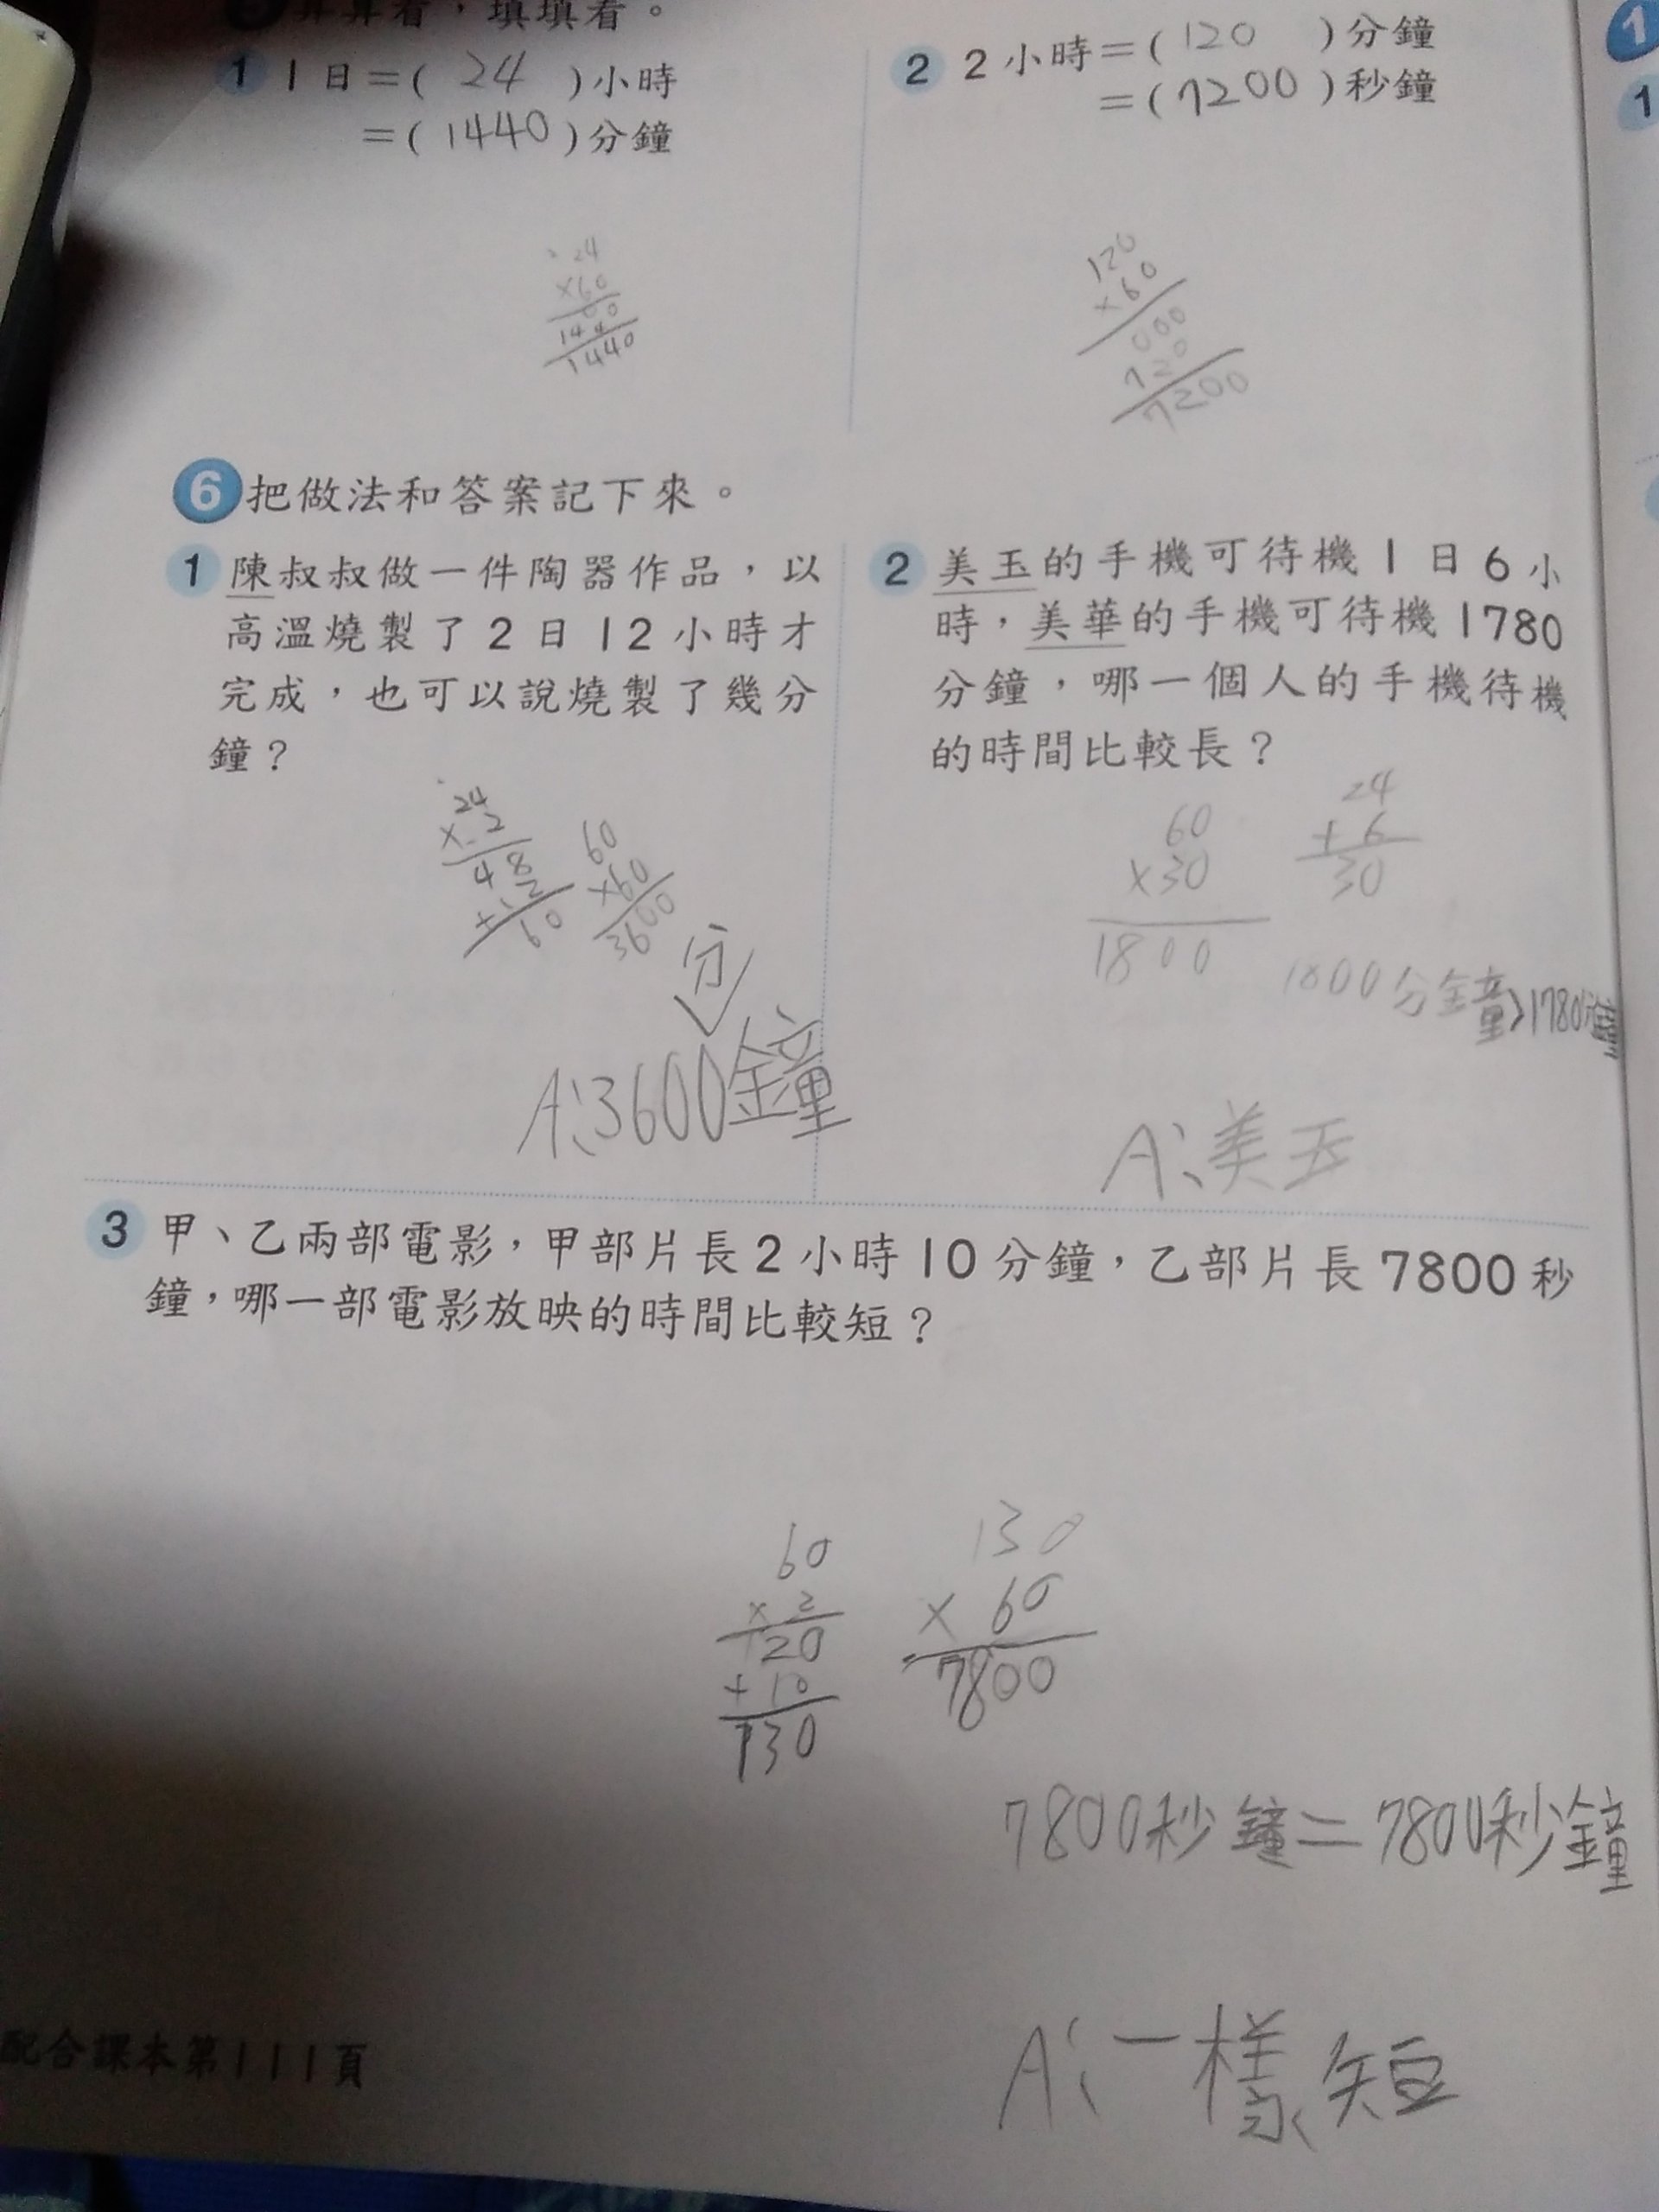 算算看,填填看。
1 1日=( 24 )小時
=( 1440 )分鐘
24
×60
00
144
1440
2 2小時=( 120 )分鐘
=( 7200 )秒鐘
120
×60
000
720
7200
6 把做法和答案記下來。
1 陳叔叔做一件陶器作品,以
高溫燒製了2日12小時才
完成,也可以說燒製了幾分
鐘?
24
×2
48
+12
60
60
×60
3600
分
A:3600鐘
2 美玉的手機可待機1日6小
時,美華的手機可待機1780
分鐘,哪一個人的手機待機
的時間比較長?
60
×30
1800
24
+6
30
1800分鐘>1780分鐘
A:美玉
3 甲、乙兩部電影,甲部片長2小時10分鐘,乙部片長7800秒
鐘,哪一部電影放映的時間比較短?
60
×2
120
+10
130
130
×60
7800
7800秒鐘=7800秒鐘
A:一樣短
配合課本第111頁
1
1